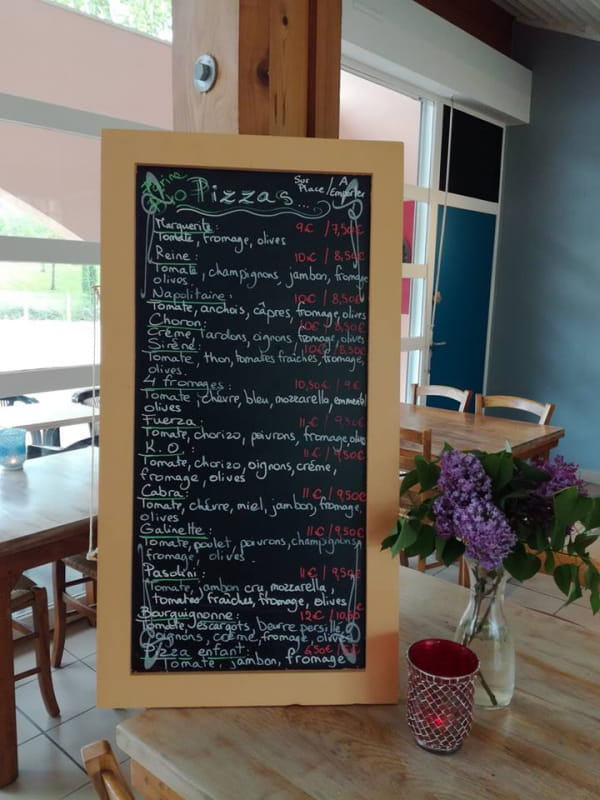 Pizzas...
Sur Place / A Emporter
Marguerite : 9€ / 7,50€
Tomate, fromage, olives
Reine : 10€ / 8,50€
Tomate, champignons, jambon, fromage
olives.
Napolitaine : 10€ / 8,50€
Tomate, anchois, câpres, fromage, olives
Choron : 10€ / 8,50€
Crème, lardons, oignons, fromage, olives
Sirène : 10€ / 8,50€
Tomate, thon, tomates fraîches, fromage,
olives.
4 fromages : 10,50€ / 9€
Tomate, chèvre, bleu, mozzarella, emmental
olives
Fuerza : 11€ / 9,50€
Tomate, chorizo, poivrons, fromage, olives
K.O. : 11€ / 9,50€
Tomate, chorizo, oignons, créme,
fromage, olives
Cabra : 11€ / 9,50€
Tomate, chèvre, miel, jambon, fromage,
olives
Galinette : 11€ / 9,50€
Tomate, poulet, poivrons, champignons,
fromage, olives.
Pasolini : 11€ / 9,50€
Tomate, jambon cru, mozzarella,
tomates fraîches, fromage, olives
Bourguignonne : 12€ /
Tomate, escargots, beurre persillé,
oignons, crème, fromage, olives
Pizza enfant : 6,50€ /
Tomate, jambon, fromage